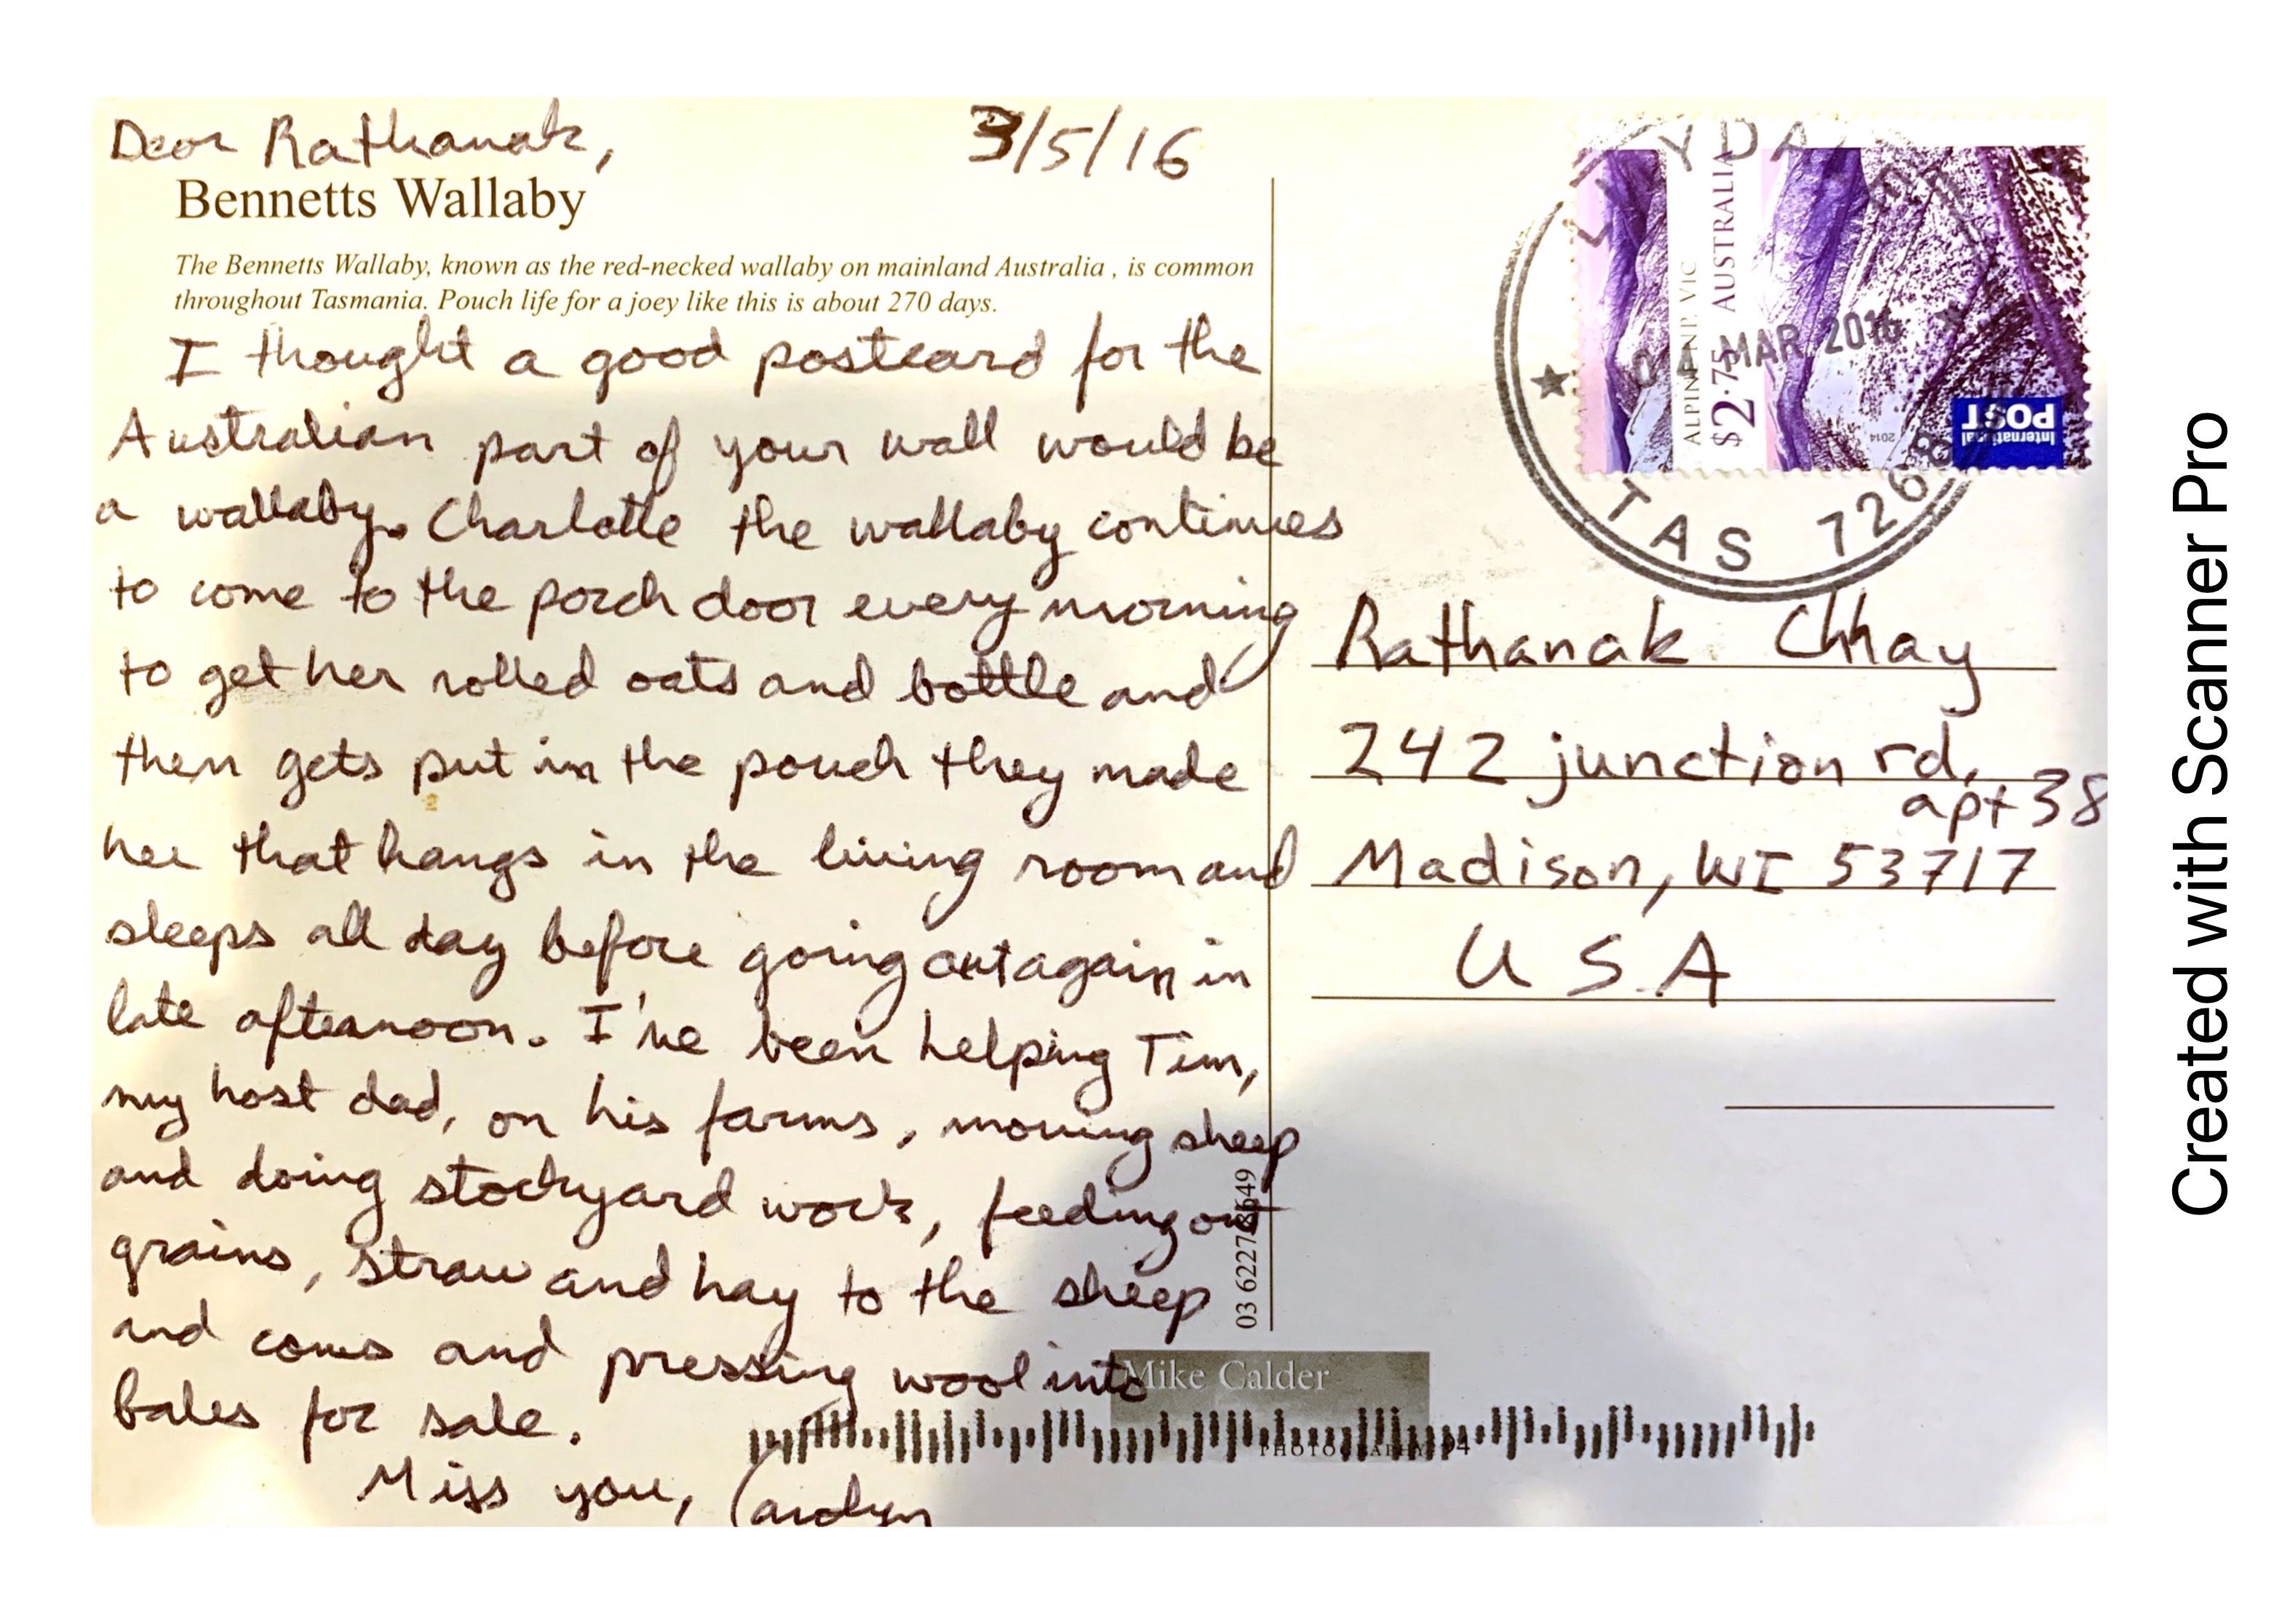 Dear Rathanak,
3/5/16
Bennetts Wallaby
The Bennetts Wallaby, known as the red-necked wallaby on mainland Australia , is common
throughout Tasmania. Pouch life for a joey like this is about 270 days.
I thought a good postcard for the
Australian part of your wall would be
a wallaby. Charlotte the wallaby continues
to come to the porch door every morning
to get her rolled oats and bottle and
then gets put in the pouch they made
her that hangs in the living room and
sleeps all day before going out again in
late afternoon. I've been helping Tim,
my host dad, on his farms, moving sheep
and doing stockyard work, feeding out
grains, straw and hay to the sheep
and cows and pressing wool into
bales for sale.
Miss you, Carolyn
ALPINE NP, VIC
$2.75 AUSTRALIA
2014
International
POST
04 MAR 2016
TAS 7268
Rathanak Chhay
242 junction rd,
apt 38
Madison, WI 53717
U S.A
03 6227 8649
Mike Calder
PHOTOGRAPHY
Created with Scanner Pro